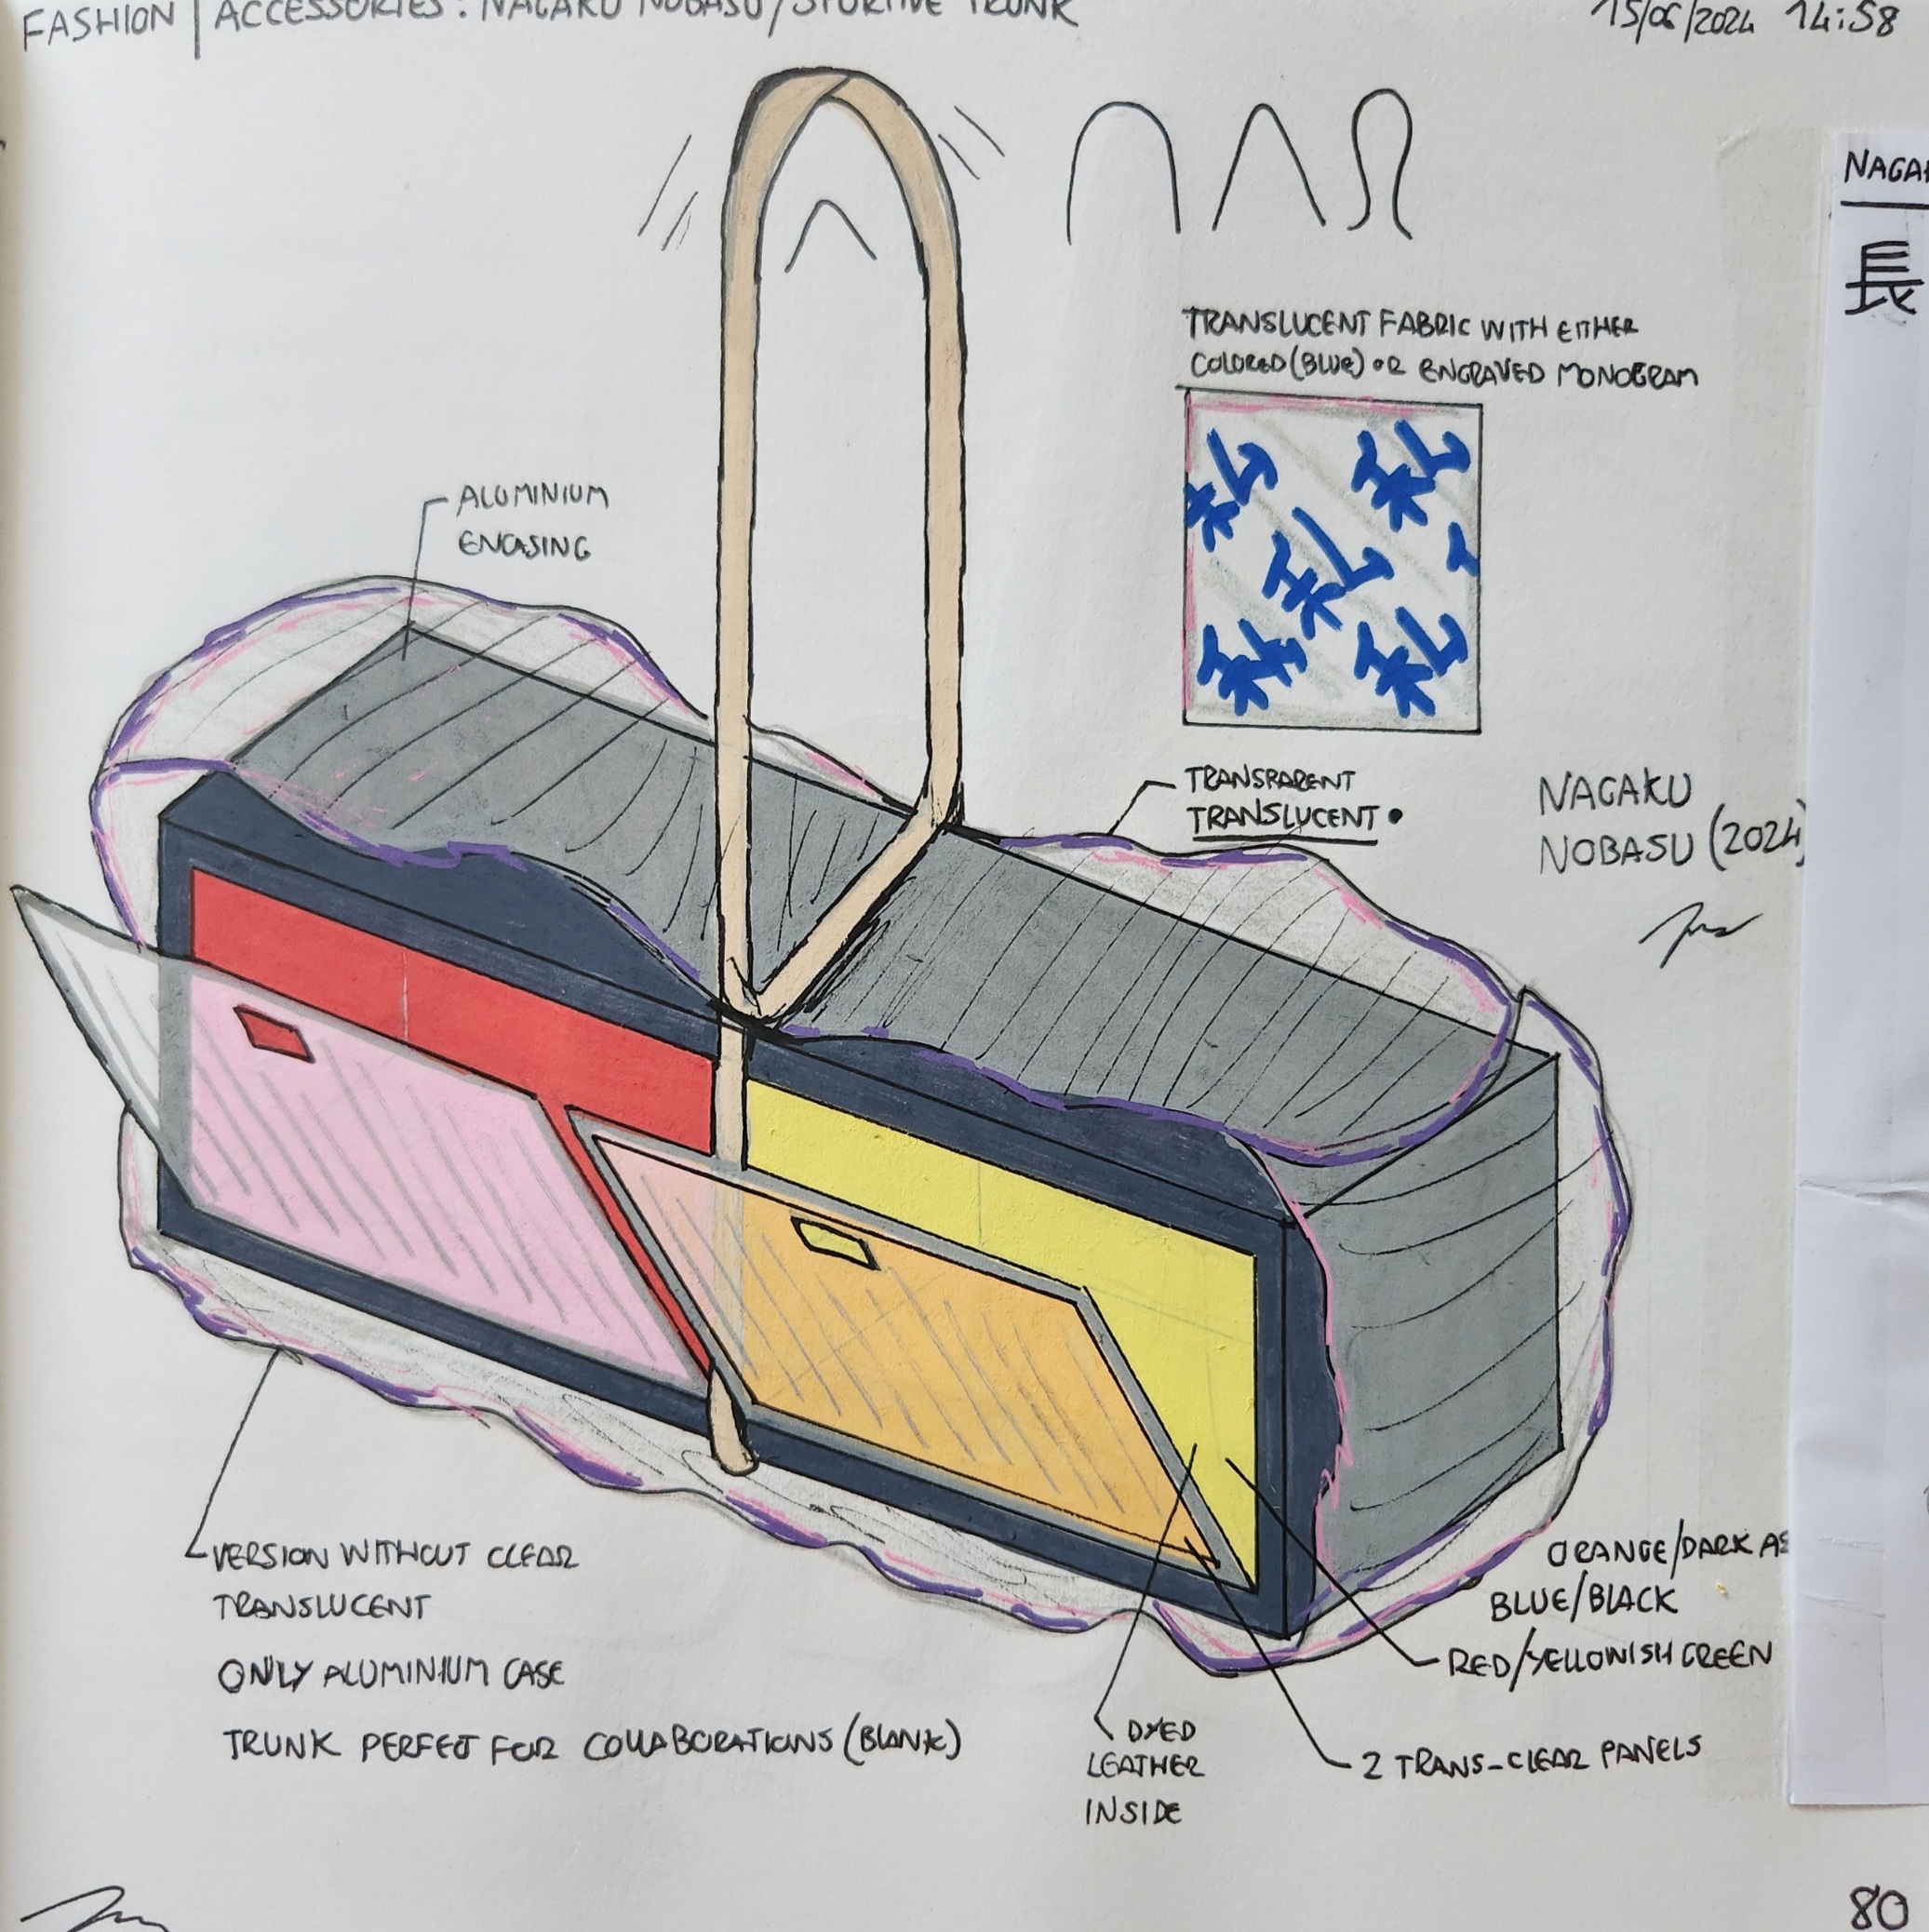 FASHION | ACCESSORIES : NAGAKU NOBASU / SPORTIVE TRUNK
15/06/2024 14:58
NAGAK
長
TRANSLUCENT FABRIC WITH EITHER
COLORED (BLUE) OR ENGRAVED MONOGRAM
ALUMINIUM
ENCASING
TRANSPARENT
TRANSLUCENT •
NAGAKU
NOBASU (2024)
VERSION WITHOUT CLEAR
TRANSLUCENT
ONLY ALUMINIUM CASE
TRUNK PERFECT FOR COLLABORATIONS (BLANK)
ORANGE/DARK
BLUE/BLACK
RED/YELLOWISH GREEN
DYED
LEATHER
INSIDE
2 TRANS-CLEAR PANELS
80